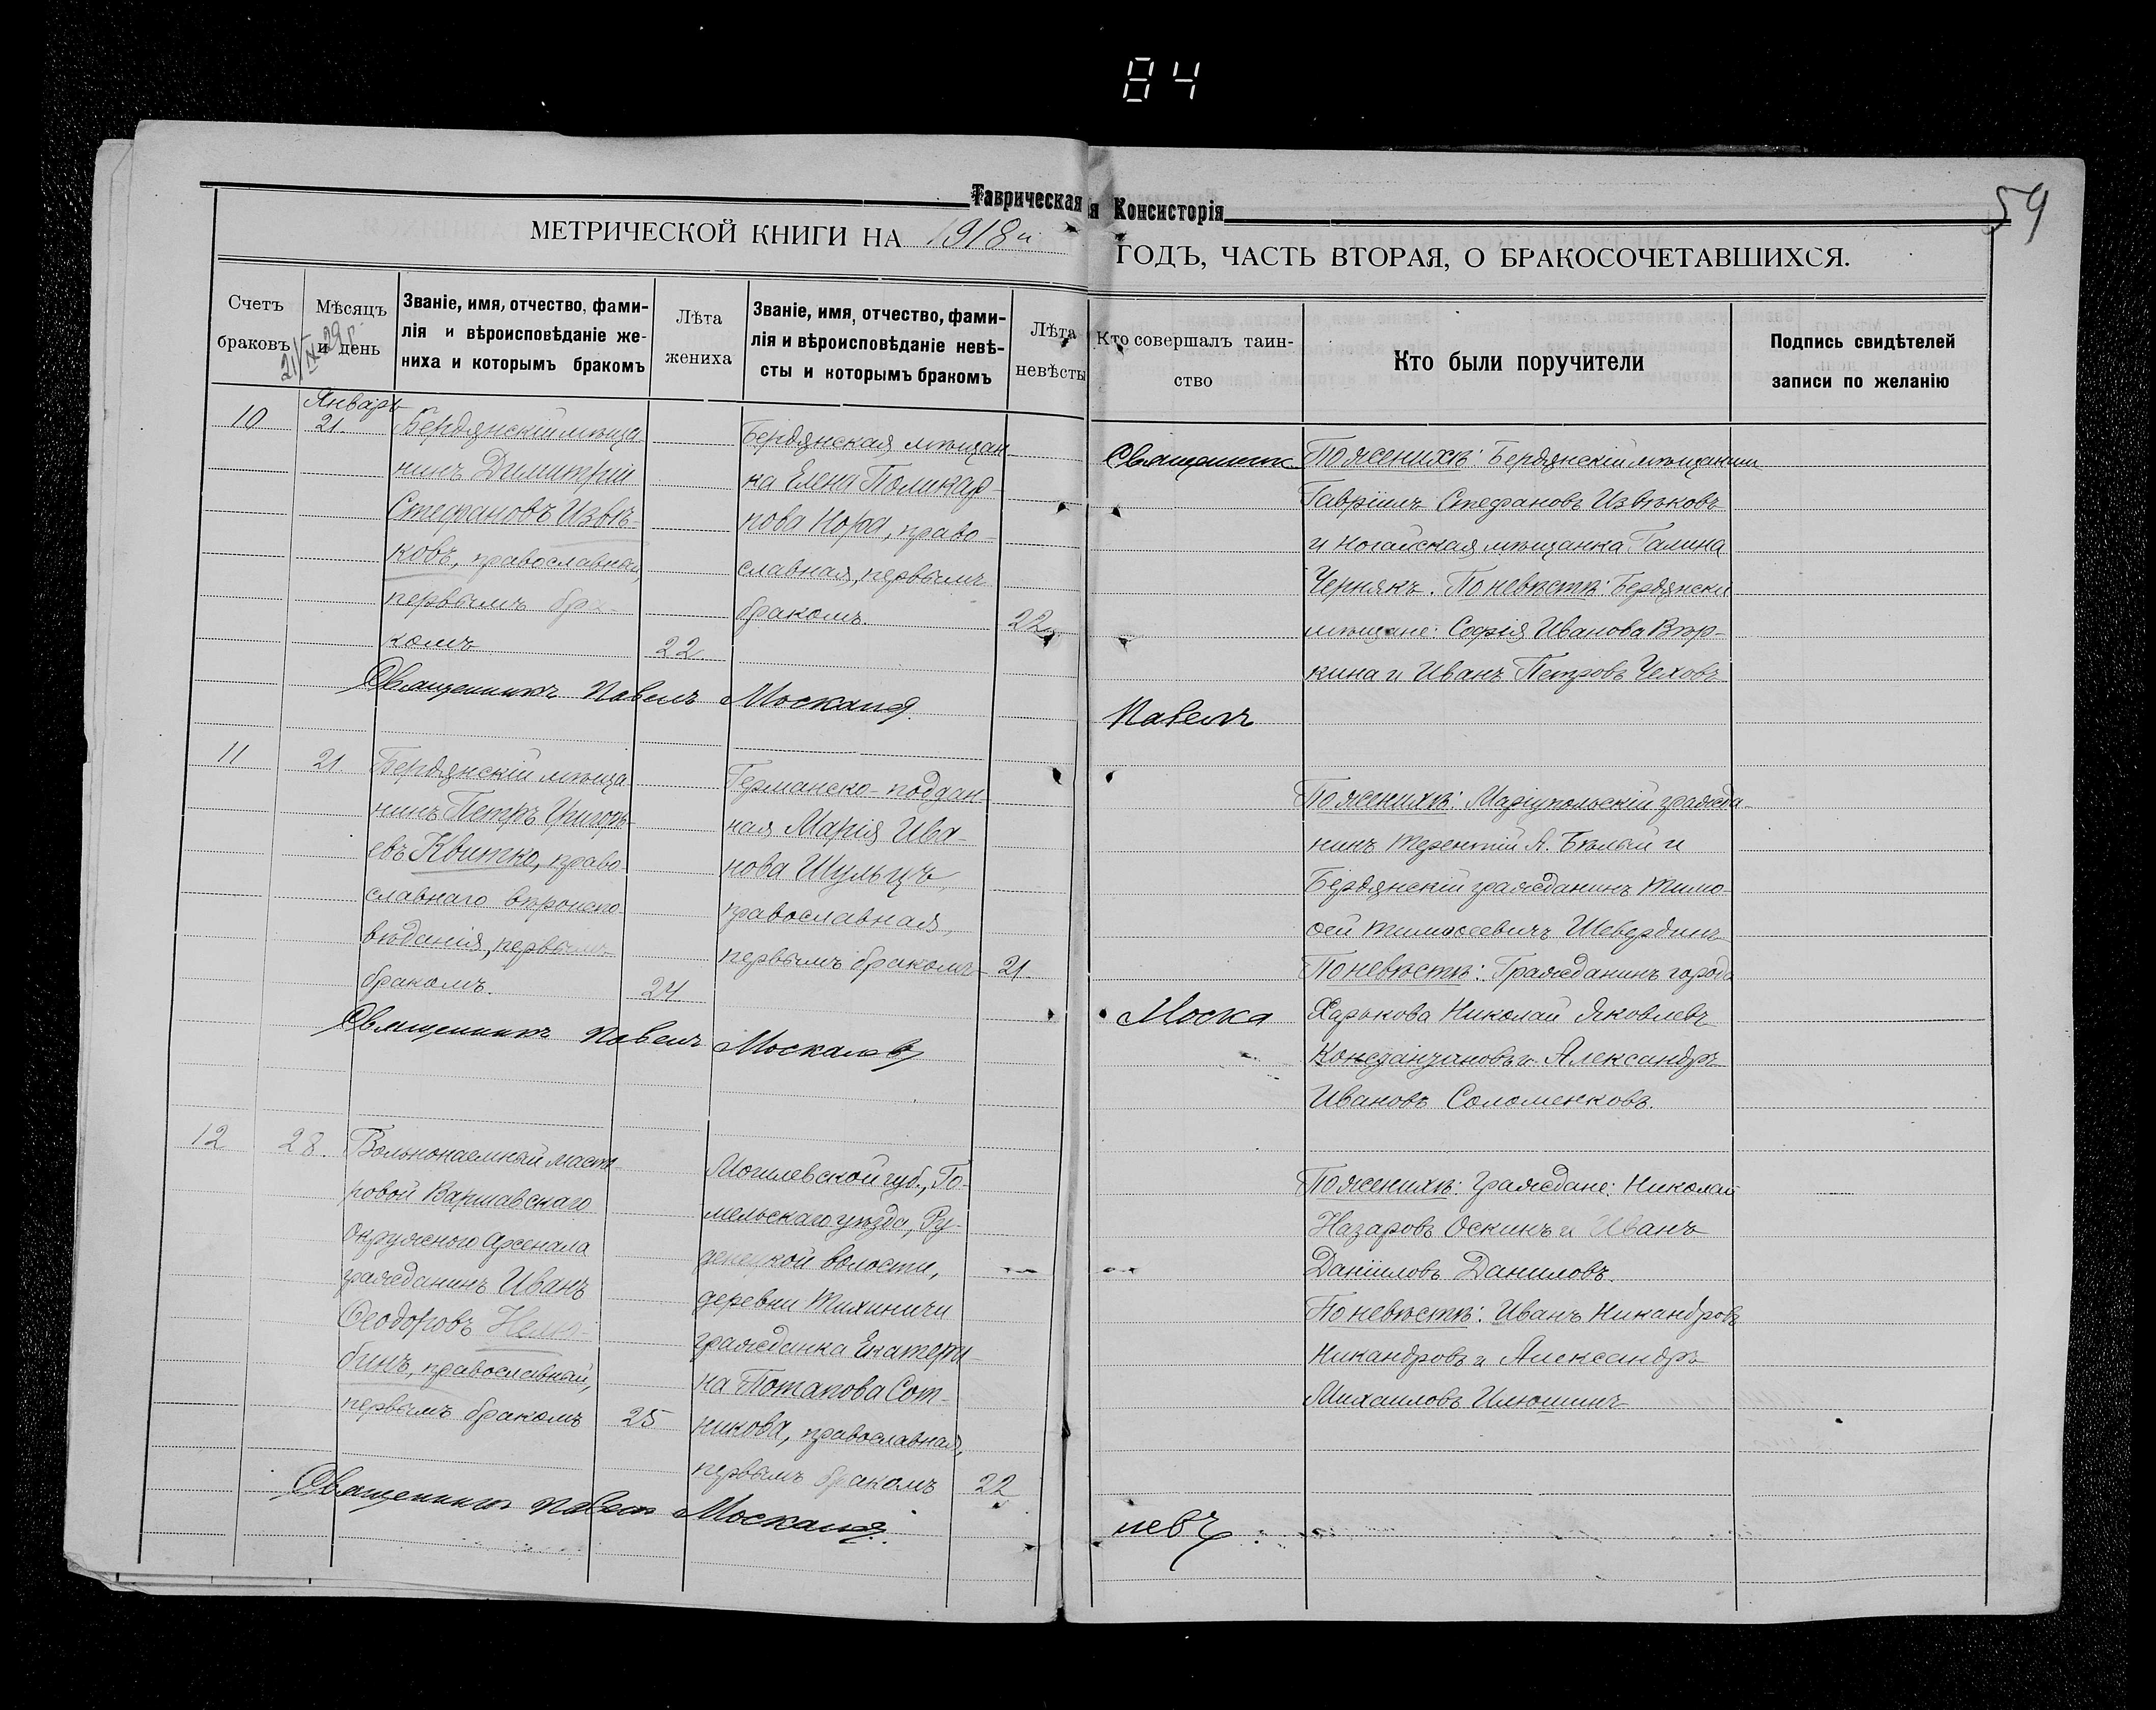 84
59
Таврическая
я Консисторія
МЕТРИЧЕСКОЙ КНИГИ НА 1918й
ГОДЪ, ЧАСТЬ ВТОРАЯ, О БРАКОСОЧЕТАВШИХСЯ.
Счетъ
браковъ
Мѣсяцъ
и день
21/IX 29 г.
Званіе, имя, отчество, фами-
лія и вѣроисповѣданіе же-
ниха и которымъ бракомъ
Лѣта
жениха
Званіе, имя, отчество, фами-
лія и вѣроисповѣданіе невѣ-
сты и которымъ бракомъ
Лѣта
невѣсты
Кто совершалъ таин-
ство
Кто были поручители
Подпись свидѣтелей
записи по желанію
10
Январь
21.
Бердянскій мѣща
нинъ Димитрій
Стефановъ Извѣ-
ковъ, православный,
первымъ бра-
комъ
22.
Бердянская мѣщан-
ка Елена Поликар-
пова Нора, право-
славная, первымъ
бракомъ.
22
Священникъ Павелъ Москалевъ
Священникъ
По женихѣ: Бердянскій мѣщанинъ
Гавріилъ Стефановъ Извѣковъ
и Ногайская мѣщанка Галина
Чернякъ. По невѣстѣ: Бердянски
мѣщане: Софія Иванова Вѣр-
кина и Иванъ Петровъ Чеховъ
Павелъ
11
21.
Бердянскій мѣща
нинъ Петръ Григорь-
евъ Квитко, право
славнаго вѣроиспо-
вѣданія, первымъ
бракомъ.
24
Германско-поддан-
ная Марія Ива-
нова Шульцъ,
православная,
первымъ бракомъ
21.
Священникъ Павелъ Москалевъ
По женихѣ: Маріупольскій гражда-
нинъ Терентій А. Бѣлый и
Бердянскій гражданинъ Тимо-
ѳей Тимоѳеевичъ Шевердинъ
По невѣстѣ: Гражданинъ города
Моска
Харькова Николай Яковлевъ
и Александръ
Ивановъ Соломенковъ.
12
28.
Вольнонаемный масте-
ровой Варшавскаго
Окружного Арсенала
гражданинъ Иванъ
Ѳеодоровъ Неля-
бинъ, православный,
первымъ бракомъ
25
Могилевской губ., Го-
мельскаго уѣзда, Ру-
денецкой волости,
деревни Тихиничи
гражданка Екатери-
на Потапова Сот-
никова, православная,
первымъ бракомъ
22
Священникъ Павелъ Москалевъ
По женихѣ: Граждане: Николай
Назаровъ Оскинъ и Иванъ
Даніиловъ Даниловъ.
По невѣстѣ: Иванъ Никандровъ
Никандровъ и Александръ
Михаиловъ Илюшинъ
левъ